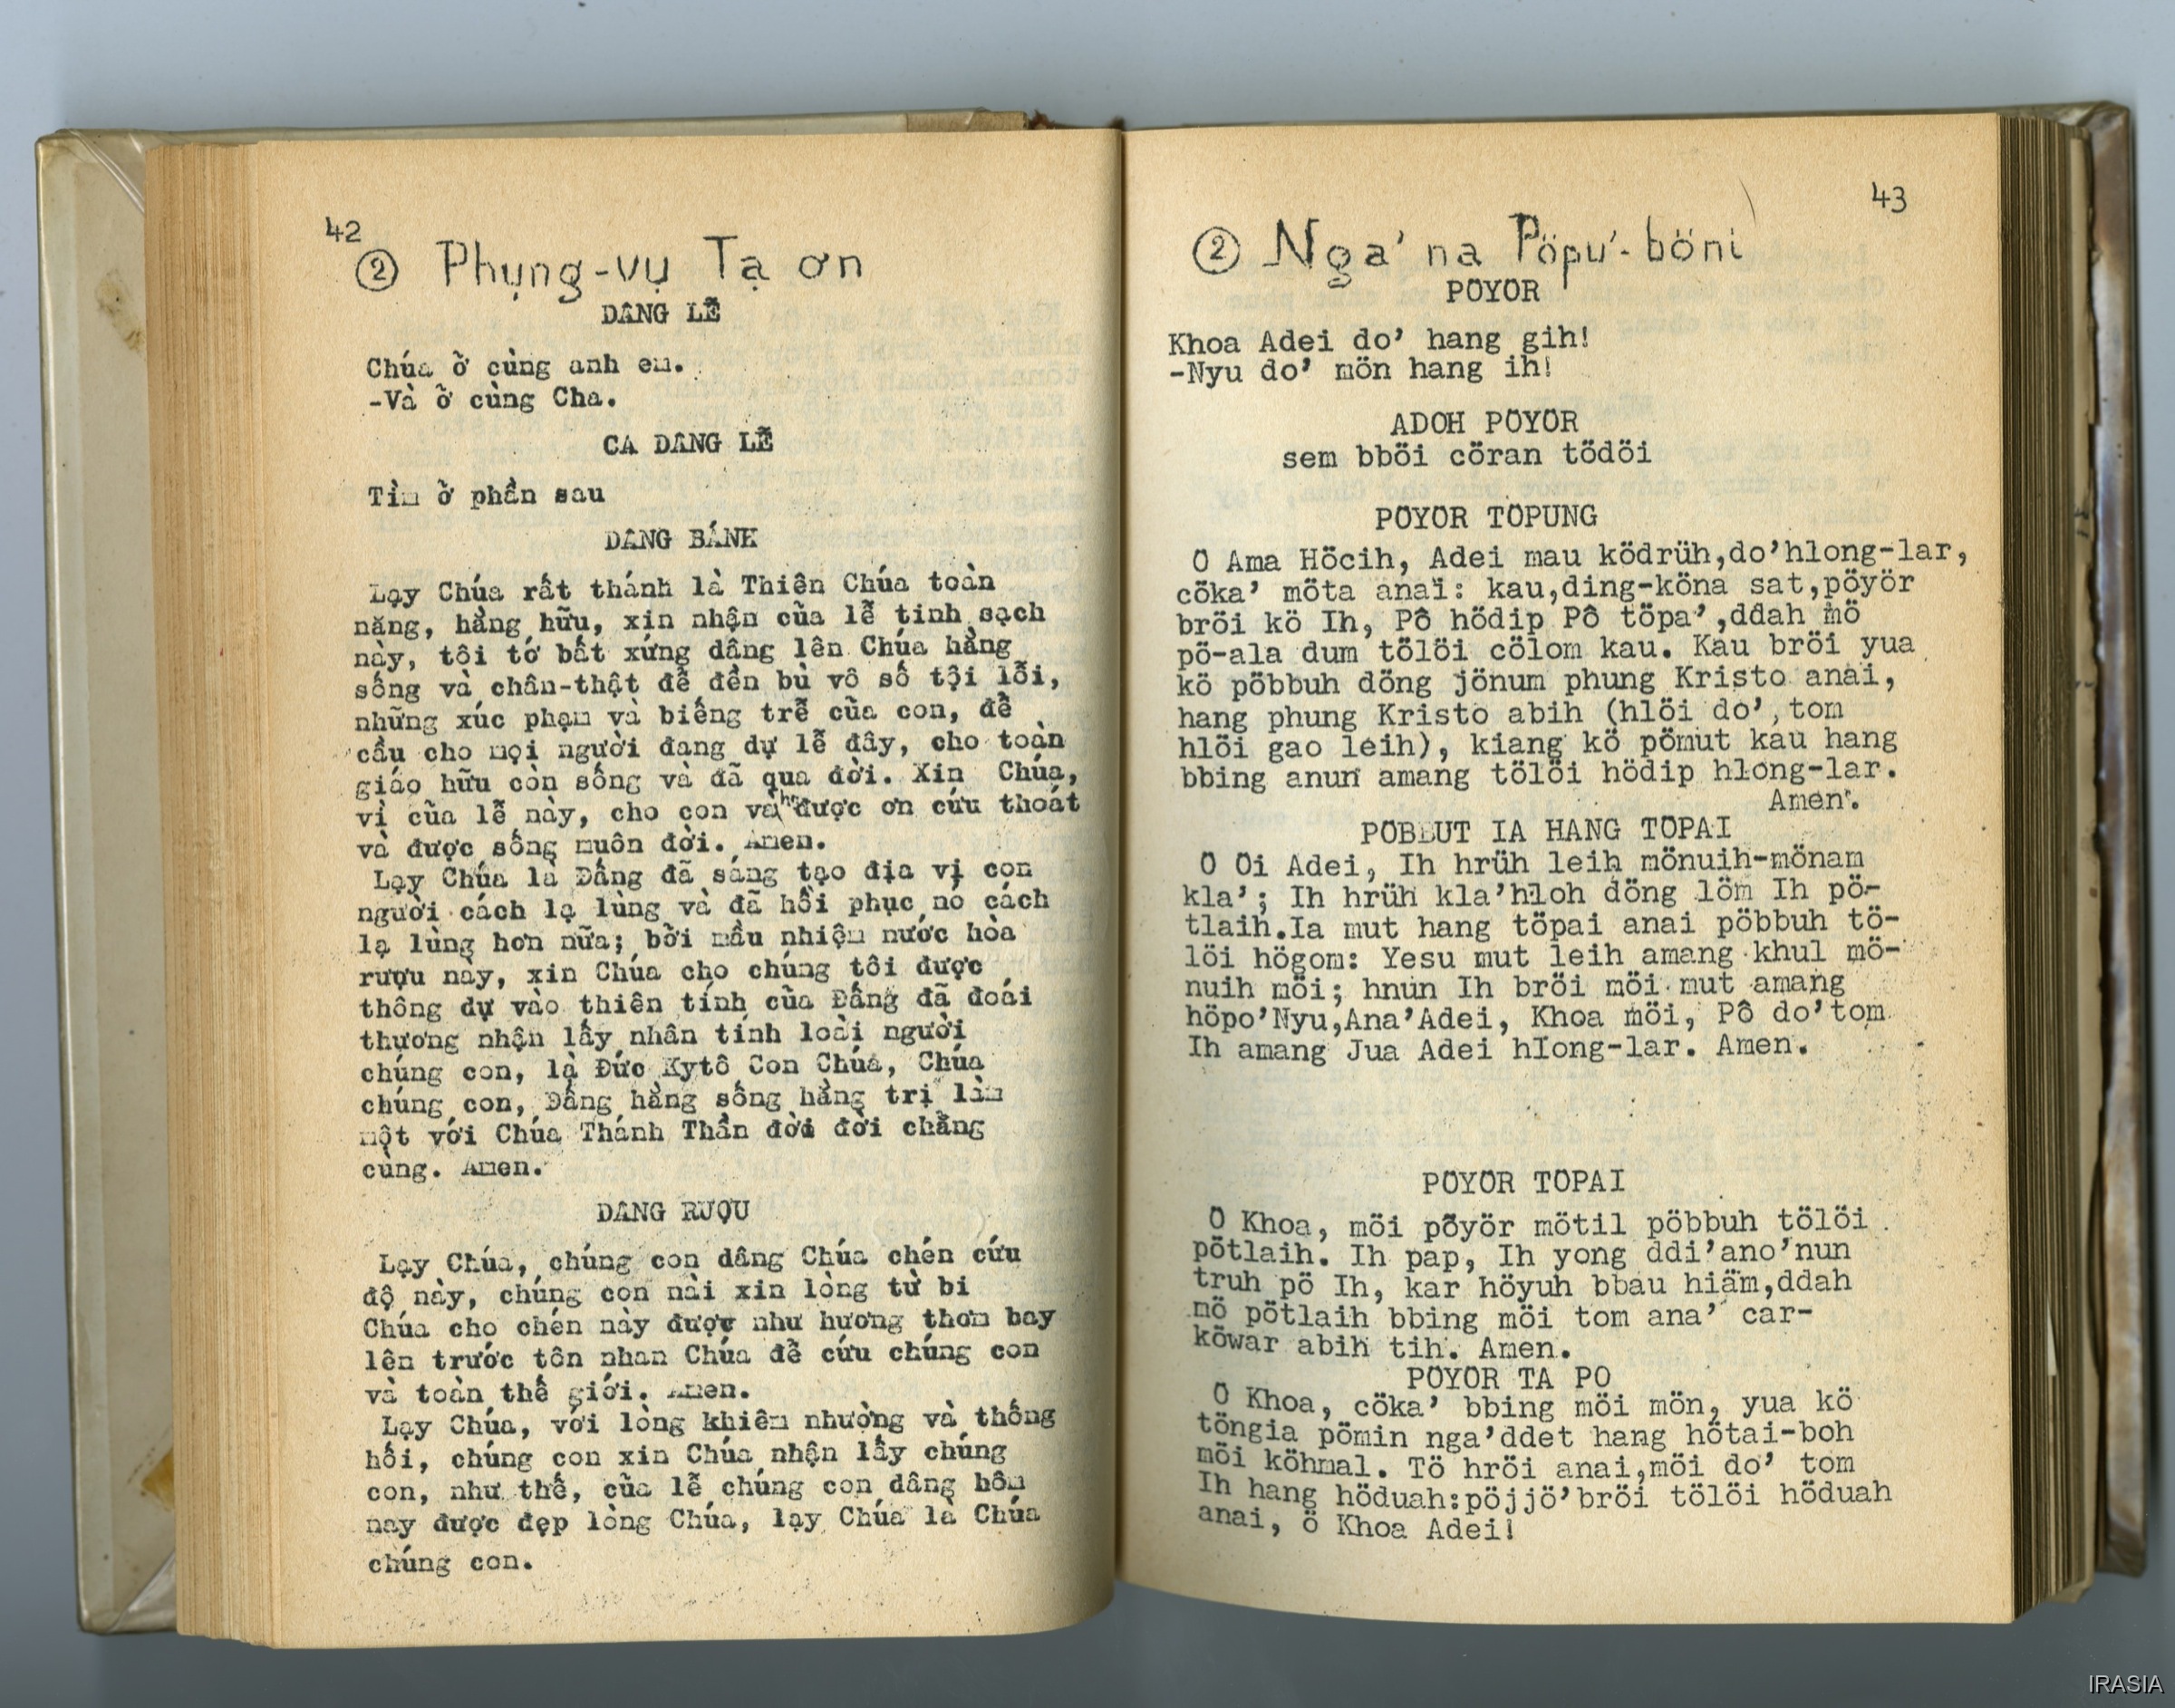 42
② Phụng-vụ Tạ ơn
DÂNG LỄ
Chúa ở cùng anh em.
-Và ở cùng Cha.
CA DÂNG LỄ
Tìm ở phần sau
DÂNG BÁNH
Lạy Chúa rất thánh là Thiên Chúa toàn
năng, hằng hữu, xin nhận của lễ tinh sạch
này, tôi tớ bất xứng dâng lên Chúa hằng
sống và chân-thật để đền bù vô số tội lỗi,
những xúc phạm và biếng trễ của con, để
cầu cho mọi người đang dự lễ đây, cho toàn
giáo hữu còn sống và đã qua đời. Xin Chúa,
vì của lễ này, cho con và họ được ơn cứu thoát
và được sống muôn đời. Amen.
Lạy Chúa là Đấng đã sáng tạo địa vị con
người cách lạ lùng và đã hồi phục nó cách
lạ lùng hơn nữa; bởi mầu nhiệm nước hòa
rượu này, xin Chúa cho chúng tôi được
thông dự vào thiên tính của Đấng đã đoái
thương nhận lấy nhân tính loài người
chúng con, là Đức Kytô Con Chúa, Chúa
chúng con, Đấng hằng sống hằng trị làm
một với Chúa Thánh Thần đời đời chẳng
cùng. Amen.
DÂNG RƯỢU
Lạy Chúa, chúng con dâng Chúa chén cứu
độ này, chúng con nài xin lòng từ bi
Chúa cho chén này được như hương thơm bay
lên trước tôn nhan Chúa để cứu chúng con
và toàn thế giới. Amen.
Lạy Chúa, với lòng khiêm nhường và thống
hối, chúng con xin Chúa nhận lấy chúng
con, như thế, của lễ chúng con dâng hôm
nay được đẹp lòng Chúa, lạy Chúa là Chúa
chúng con.
43
② Nga' na Pöpu'-böni
PÖYÖR
Khoa Adei do' hang gih!
-Nyu do' mön hang ih!
ADOH PÖYÖR
sem bböi cöran tödöi
PÖYÖR TÖPUNG
Ö Ama Höcih, Adei mau ködrüh,do'hlong-lar,
cöka' möta anai: kau,ding-köna sat,pöyör
bröi kö Ih, Pô hödip Pô töpa',ddah mö
pö-ala dum tölöi cölom kau. Kau bröi yua
kö pöbbuh döng jönum phung Kristo anai,
hang phung Kristo abih (hlöi do',tom
hlöi gao leih), kiang kö pömut kau hang
bbing anun amang tölöi hödip hlong-lar.
Amen.
PÖBBUT IA HANG TÖPAI
Ö Öi Adei, Ih hrüh leih mönuih-mönam
kla'; Ih hrüh kla'hloh döng löm Ih pö-
tlaih.Ia mut hang töpai anai pöbbuh tö-
löi högom: Yesu mut leih amang khul mö-
nuih möi; hnun Ih bröi möi mut amang
höpo'Nyu,Ana'Adei, Khoa möi, Pô do'tom
Ih amang Jua Adei hlong-lar. Amen.
PÖYÖR TÖPAI
Ö Khoa, möi pöyör mötil pöbbuh tölöi
pötlaih. Ih pap, Ih yong ddi'ano'nun
truh pö Ih, kar höyuh bbau hiäm,ddah
mö pötlaih bbing möi tom ana' car-
köwar abih tih. Amen.
PÖYÖR TA PO
Ö Khoa, cöka' bbing möi mön, yua kö
töngia pömin nga'ddet hang hötai-boh
möi köhmal. Tö hröi anai,möi do' tom
Ih hang höduah:pöjjö'bröi tölöi höduah
anai, ö Khoa Adei!
IRASIA